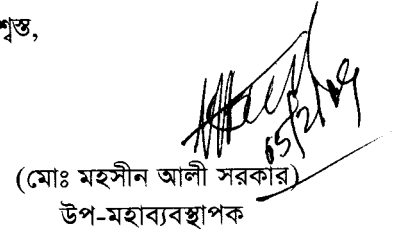 শ্বস্ত,
(মোঃ মহসীন আলী সরকার)
উপ-মহাব্যবস্থাপক